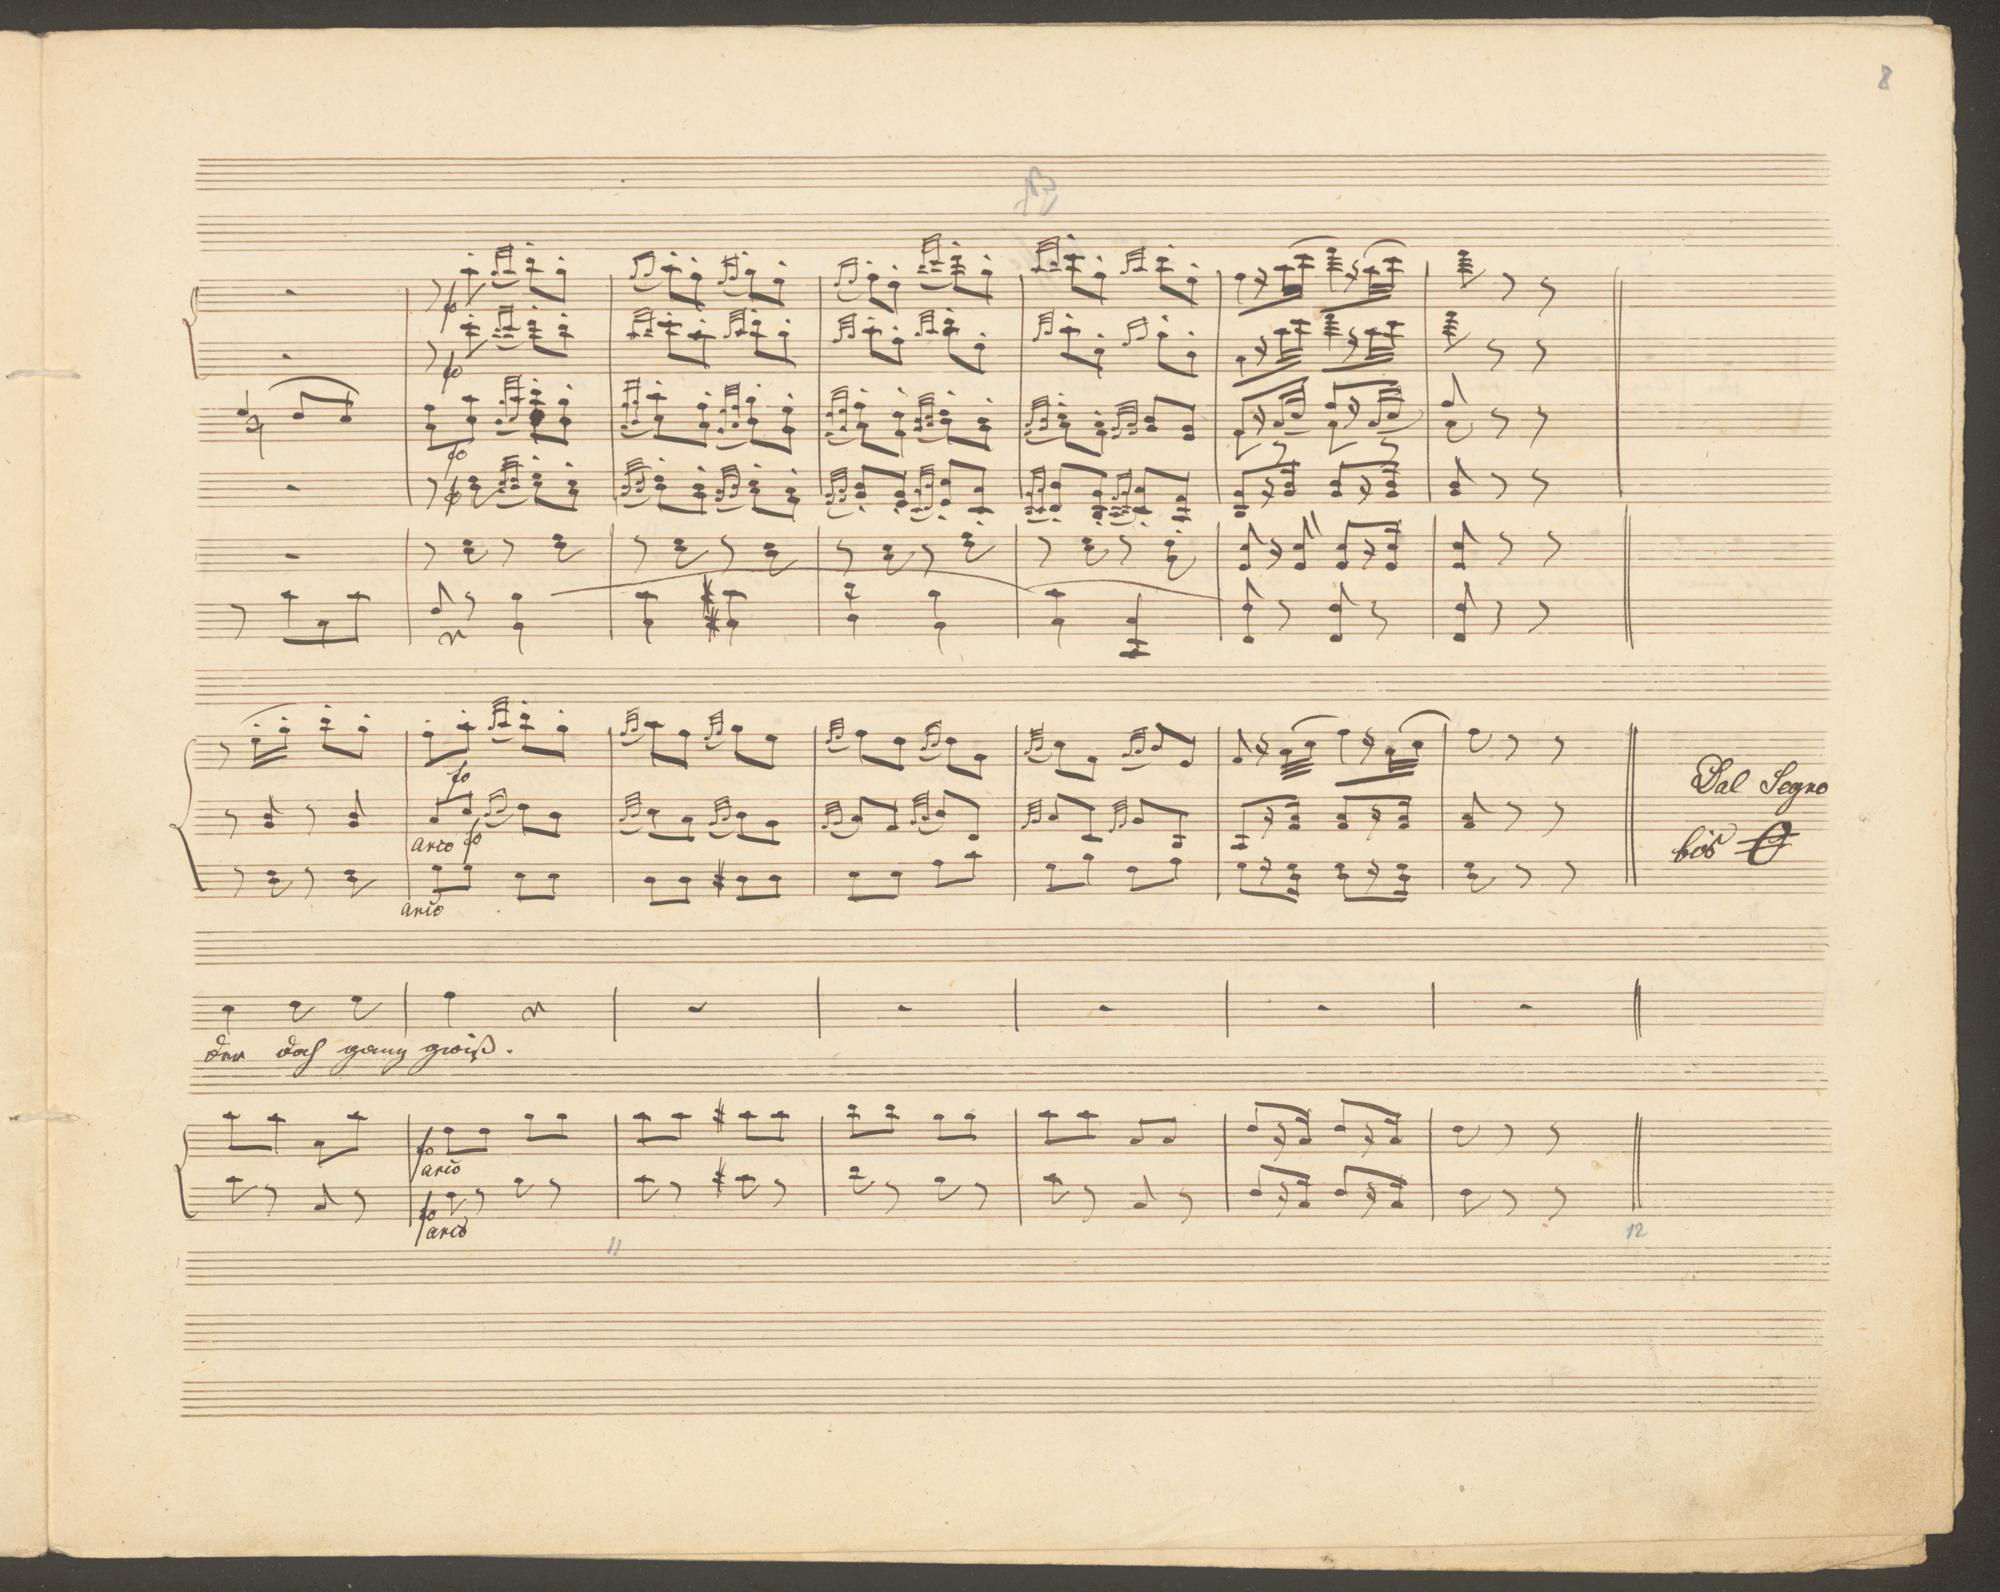 8
fo
fo
fo
fo
fo
Dal Segno
arco fo
bis
arco
der doch ganz gwiß.
fo
arco
fo
arco
11 12